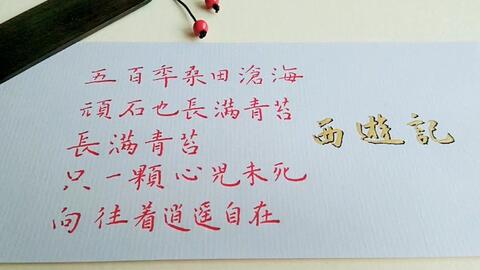 五百年桑田滄海
頑石也長滿青苔
長滿青苔
只一顆心兒未死
向往着逍遥自在
西遊記